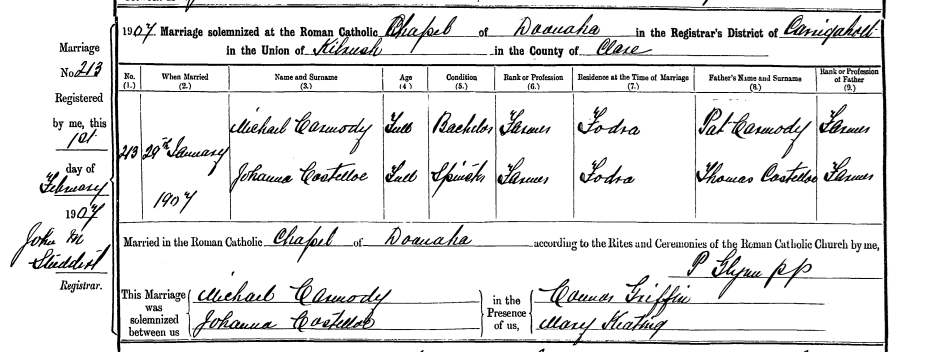 1907 Marriage solemnized at the Roman Catholic Chapel of Doonaha in the Registrar's District of Carrigaholt
in the Union of Kilrush in the County of Clare
Marriage
No. 213
Registered
by me, this
1st
day of
February
1907
John M
Studdert
Registrar.
No. When Married Name and Surname Age Condition Rank or Profession Residence at the Time of Marriage Father's Name and Surname Rank or Profession of Father
(1.) (2.) (3.) (4.) (5.) (6.) (7.) (8.) (9.)
Michael Carmody Full Bachelor Farmer Fodra Pat Carmody Farmer
213 29th January
Johanna Costelloe Full Spinster Farmer Fodra Thomas Costelloe Farmer
1907
Married in the Roman Catholic Chapel of Doonaha according to the Rites and Ceremonies of the Roman Catholic Church by me,
P Glynn pp
This Marriage was solemnized between us
Michael Carmody
Johanna Costelloe
in the Presence of us,
Connor Griffin
Mary Keating